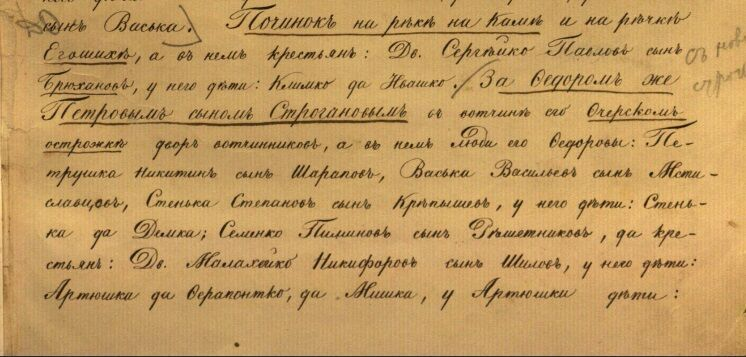 сынъ Васька. Починокъ на рѣкѣ на Камѣ и на рѣчкѣ
Егошихѣ, а въ немъ крестьянъ: Дв. Сергѣйко Павловъ сынъ
Брюхановъ, у него дѣти: Климко да Ивашко. За Ѳедоромъ же
Петровымъ сыномъ Строгановымъ въ вотчинѣ его Очерскомъ
острожкѣ дворъ вотчинниковъ, а въ немъ люди его Ѳедоровы: Пе-
трушка Никитинъ сынъ Шараповъ, Васька Васильевъ сынъ Мсти-
славцовъ, Стенька Степановъ сынъ Крѣпышевъ, у него дѣти: Стень-
ка да Демка; Семенко Пиминовъ сынъ Рѣшетниковъ, да кре-
стьянъ: Дв. Малахейко Никифоровъ сынъ Шиловъ, у него дѣти:
Артюшка да Ѳерапонтко, да Мишка, у Артюшки дѣти:
съ новой
строки